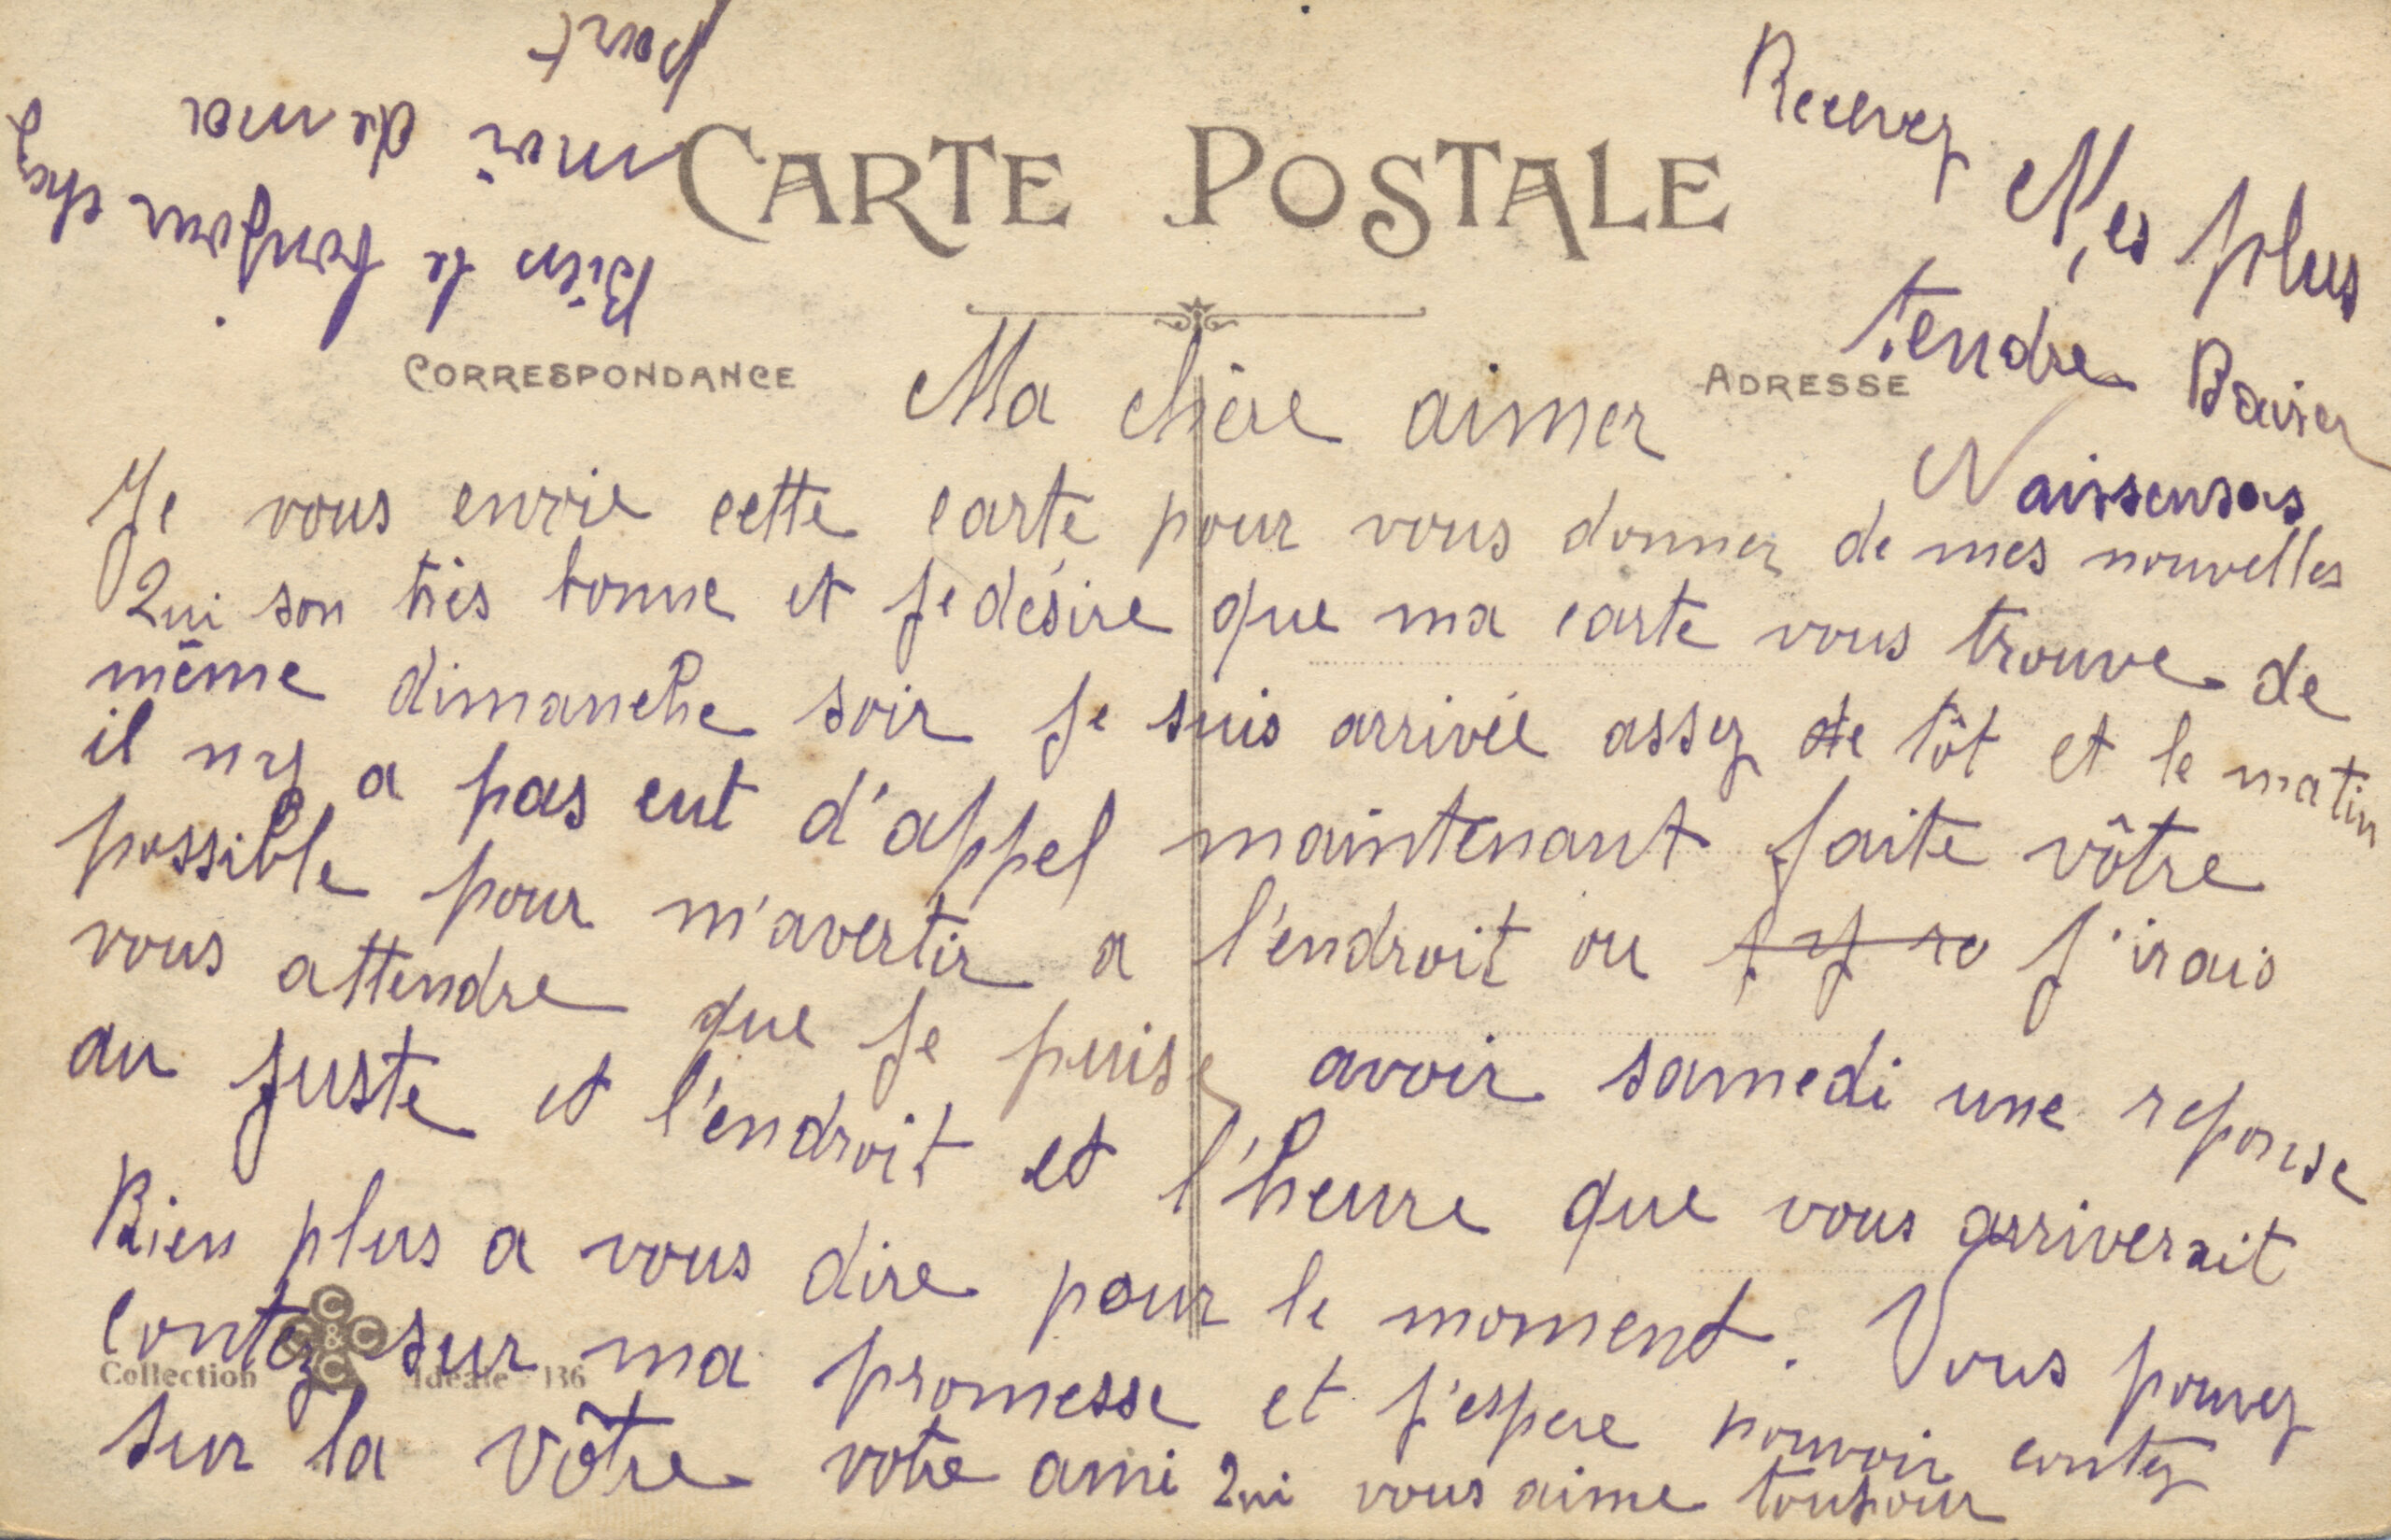 CARTE POSTALE
CORRESPONDANCE
ADRESSE
Ma chère aimer
Je vous envoie cette carte pour vous donner de mes nouvelles
Qui son très bonne et je désire que ma carte vous trouve de
même dimanche soir je suis arrivée assez de tôt et le matin
il ny a pas eut d'appel maintenant faite vôtre
possible pour m'avertir a l'endroit ou j'irais
vous attendre que je puise avoir samedi une reponse
au juste et l'endroit et l'heure que vous arriverait
Rien plus a vous dire pour le moment. Vous pouvez
contez sur ma promesse et j'espere pouvoir contez
sur la vôtre votre ami Qui vous aime toujour
Recevez
Mes plus
tendre Baiser
Bien le bonjour chez
moi de ma
part
Collection Idéale 136
C C & C C